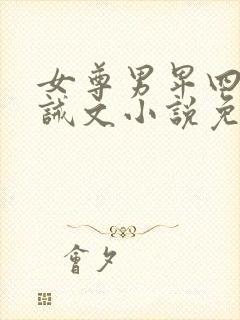 女尊男卑四
誡文小說免
會夕